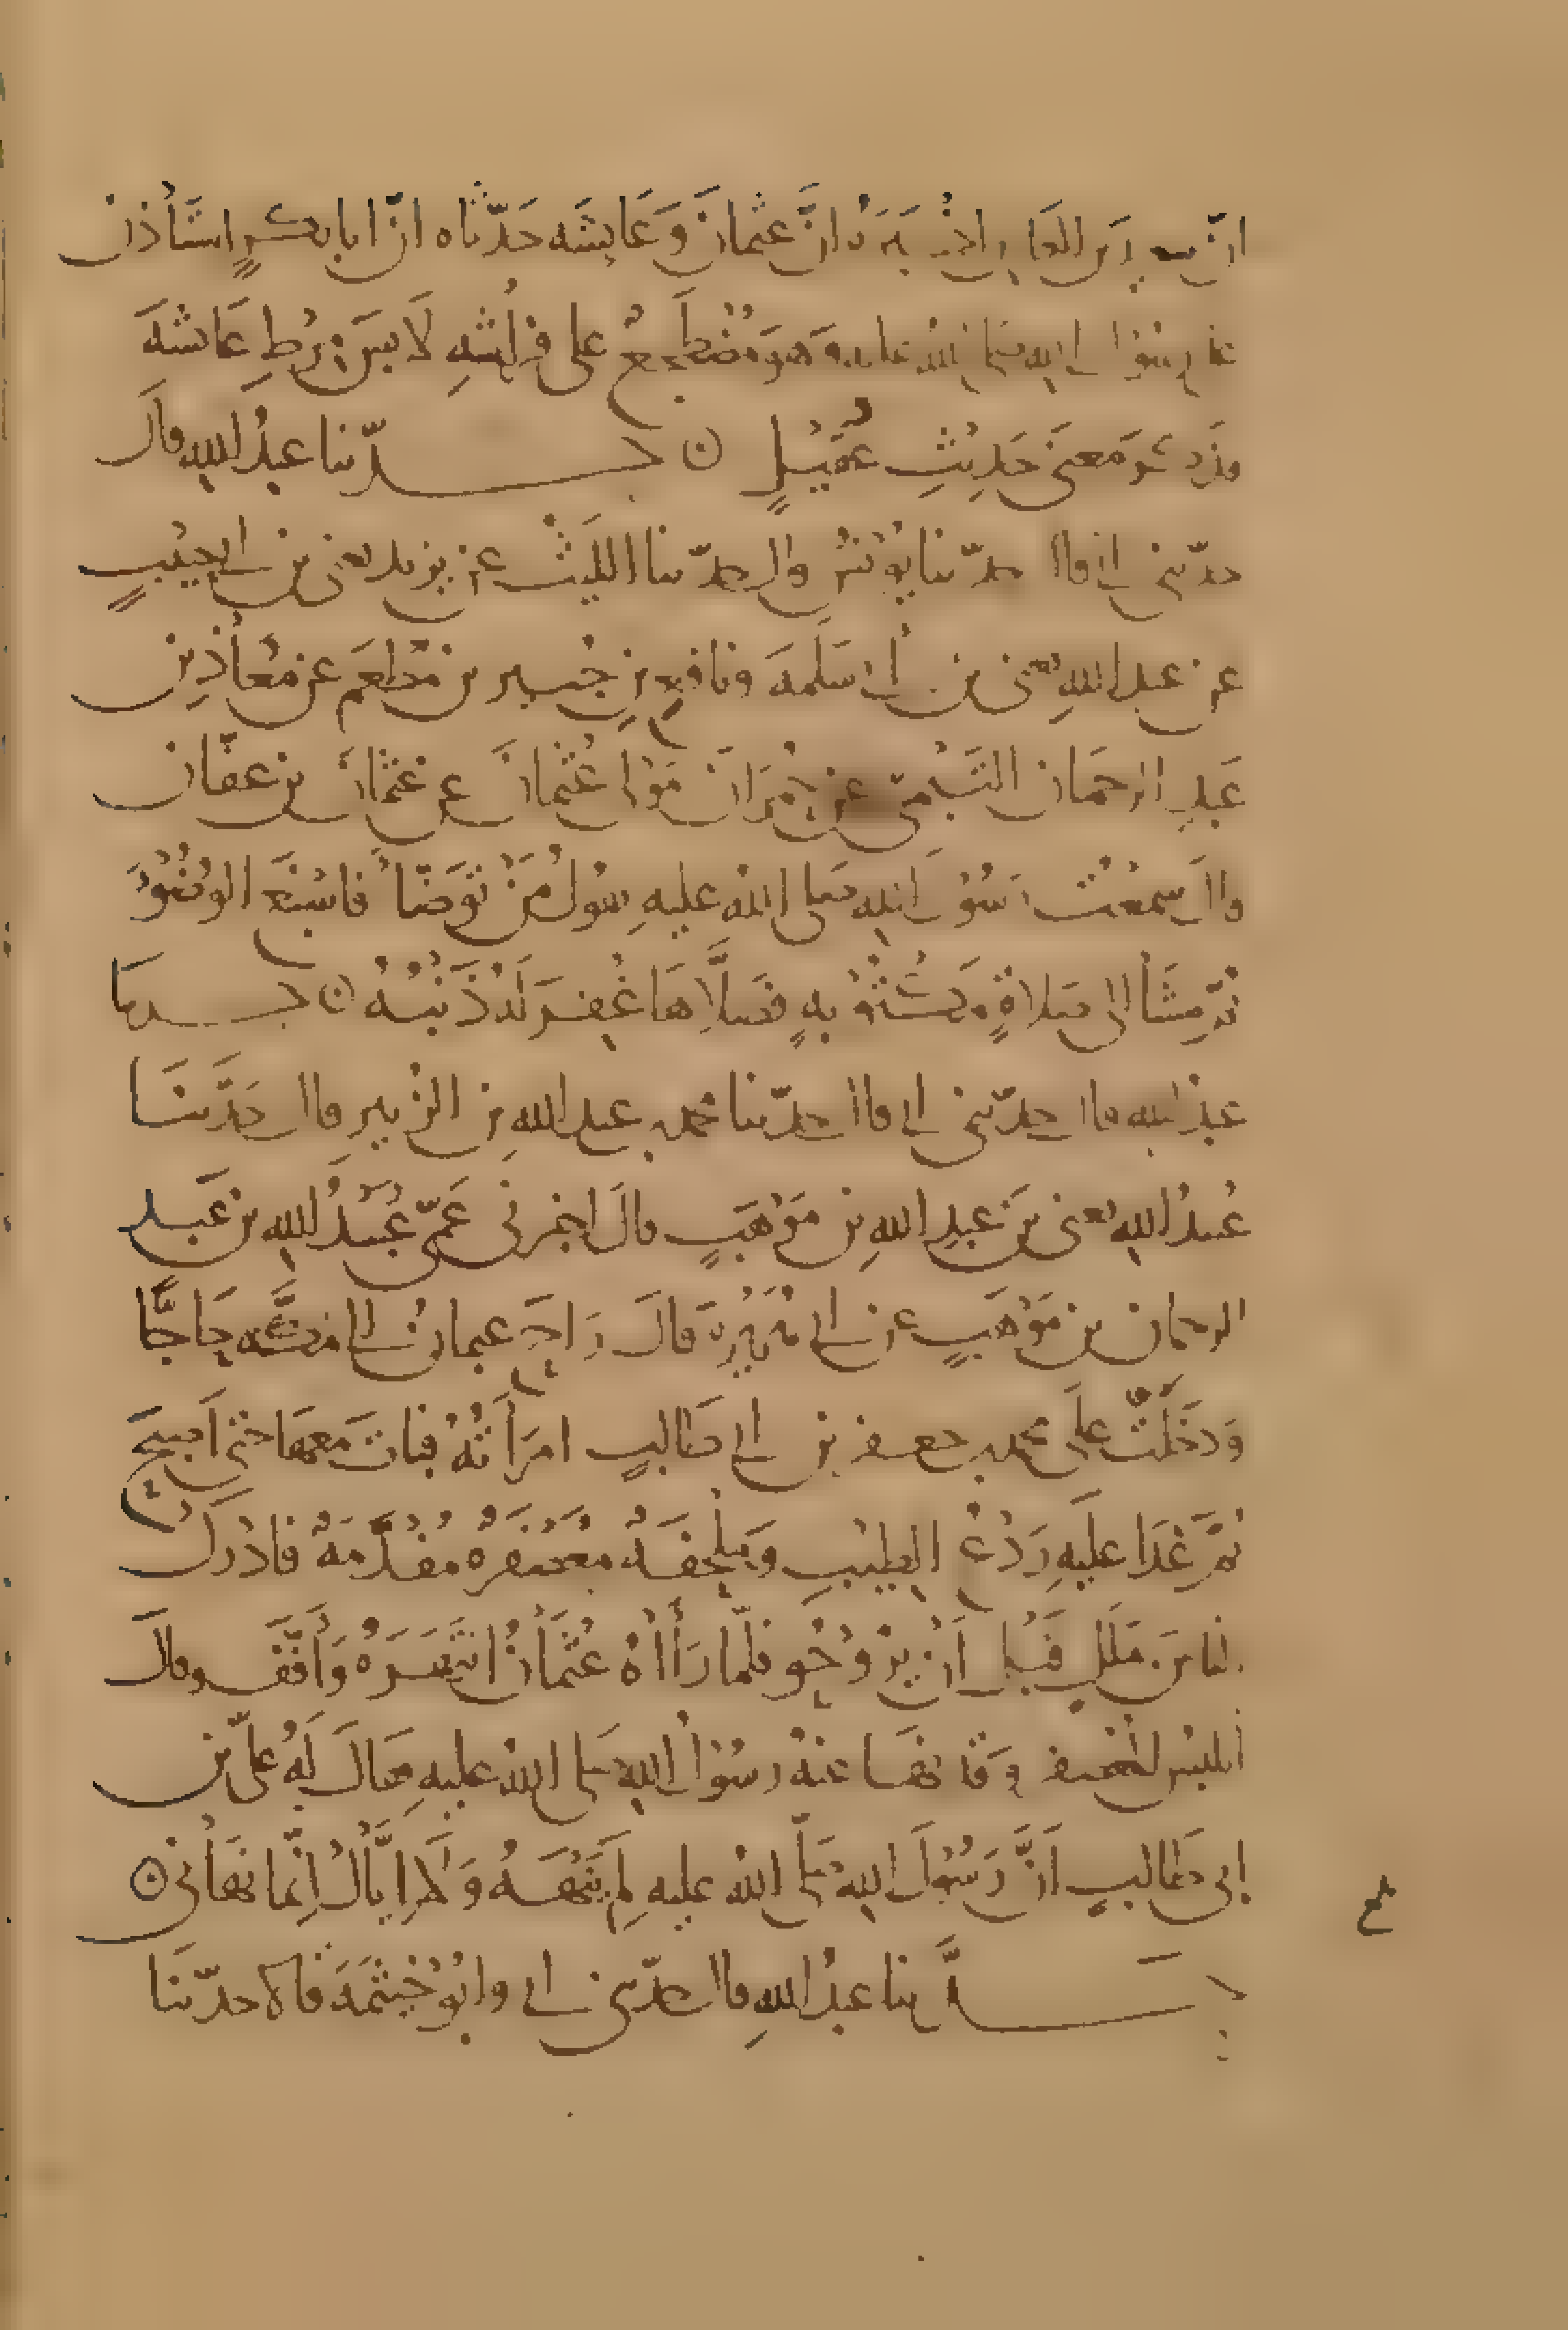 ان سعيد بن العاص اخبره انَّ عثمانَ وَعَايشَه حَدّثاه انّ ابا بكرٍ استَأذن
على رسول الله صلى الله عليه وَهوَ مُضْطَجعٌ على فراشهِ لَابسَ مِرْطِ عَائشَهَ
فذكر مَعنَى حَديثِ عُقَيْلٍ ۞ حدّثنا عبدُ اللهِ قال
حدّثني ابي قال حدّثنا يونسُ قال حدّثنا الليَثُ عن يزيد يعني بن ابي حبيبٍ
عن عبد اللهِ يعني بن ابي سَلَمهَ ونافعِ بنِ جُبيرِ بن مُطعَم عن مُعَاذِ بن
عَبدِ الرحمَان التَّيْميّ عن حُمْرَانَ مَوْلى عُثمانَ عن عُثمانَ بن عفّان
قالَ سمعْتُ رَسُولَ الله صلى اللهُ عليهِ يقول مَنْ تَوَضّأ فاسْبَغَ الوُضُوءَ
ثمّ مِشَا الى صَلاةٍ مَكْتُوْبهٍ فصَلَّاهَا غُفِرَ لَهُ ذَنْبُهُ ۞ حدثنَا
عبدُ الله قال حدّثني ابي قال حدّثنا محمد بن عبد اللهِ بن الزبيرِ قال حَدَّثنَا
عُبيدُ اللهِ يعني بنَ عبدِ اللهِ بن مَوْهَبٍ قالَ اخبرني عَمّي عُبيْدُ اللهِ بن عَبدِ
الرحمان بن مَوْهَبٍ عن ابي هُرَيْرهَ قالَ رَاحَ عثمانُ الى مَكَّه حَاجًّا
وَدخَلَتْ علَى محمد بن جعفر بن ابي طَالبٍ امرَأتُهُ فبَاتَ مَعهَا حتى اَصبحَ
ثمَّ غَدَا عليهِ رَدْعُ الطيبِ وَمِلْحفَهٌ مُعَصْفَرَهٌ مُفْدَمَهٌ فادْرَكَ
الناسَ بمَللٍ قَبْلَ اَنْ يَرُوحُو فلمّا رَأاهُ عُثمَانُ انتهَرَهُ وَأَفَّفَ وقالَ
اتلبسُ المُعصفر وَقد نهَا عنهُ رسُوْلُ اللهِ صلى اللهُ عليهِ فقالَ لَهُ عليّ بن
ابي طَالبٍ اَنَّ رَسُوْلَ اللهِ صَلّى اللهُ عليهِ لَمْ يَنْهَهُ وَلا إيَّاكَ إنّما نهَاني ۞
حدَّثنا عبدُ اللهِ قال حدّثني ابي وابُو خَيْثمَهَ قالا حدّثنَا
بلغ